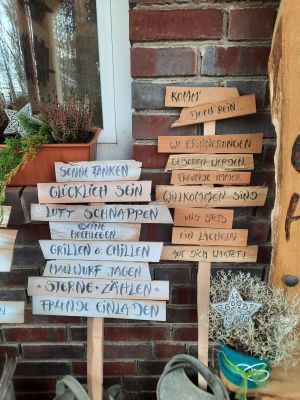 SONNE TANKEN
GLÜCKLICH SEIN
LUFT SCHNAPPEN
BEINE
HOCHLEGEN
GRILLEN & CHILLEN
MAULWURF JAGEN
STERNE ZÄHLEN
FREUNDE EINLADEN
KOMM'
DOCH REIN
WO ERINNERUNGEN
GEBOREN WERDEN,
FREUNDE IMMER
WILLKOMMEN SIND
UND STETS
EIN LÄCHELN
AUF DICH WARTET!